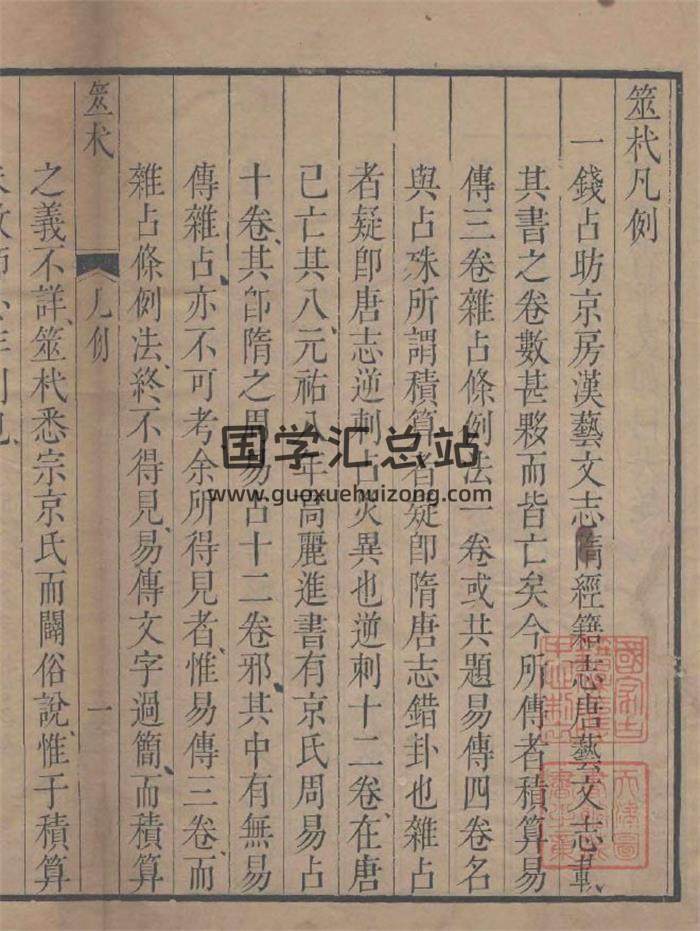 筮杙凡例
一錢占昉京房漢藝文志隋經籍志唐藝文志載
其書之卷數甚夥而皆亡矣今所傳者積算易
傳三卷雜占條例法一卷或共題易傳四卷名
與占殊所謂積算者疑卽隋唐志錯卦也雜占
者疑卽唐志逆刺占災異也逆刺十二卷在唐
已亡其八元祐八年高麗進書有京氏周易占
十卷其卽隋之周易占十二卷邪其中有無易
傳雜占亦不可考余所得見者惟易傳三卷而
雜占條例法終不得見易傳文字過簡而積算
筮杙
凡例
一
之義不詳筮杙悉宗京氏而闢俗說惟于積算
国学汇总站
www.guoxuehuizong.com